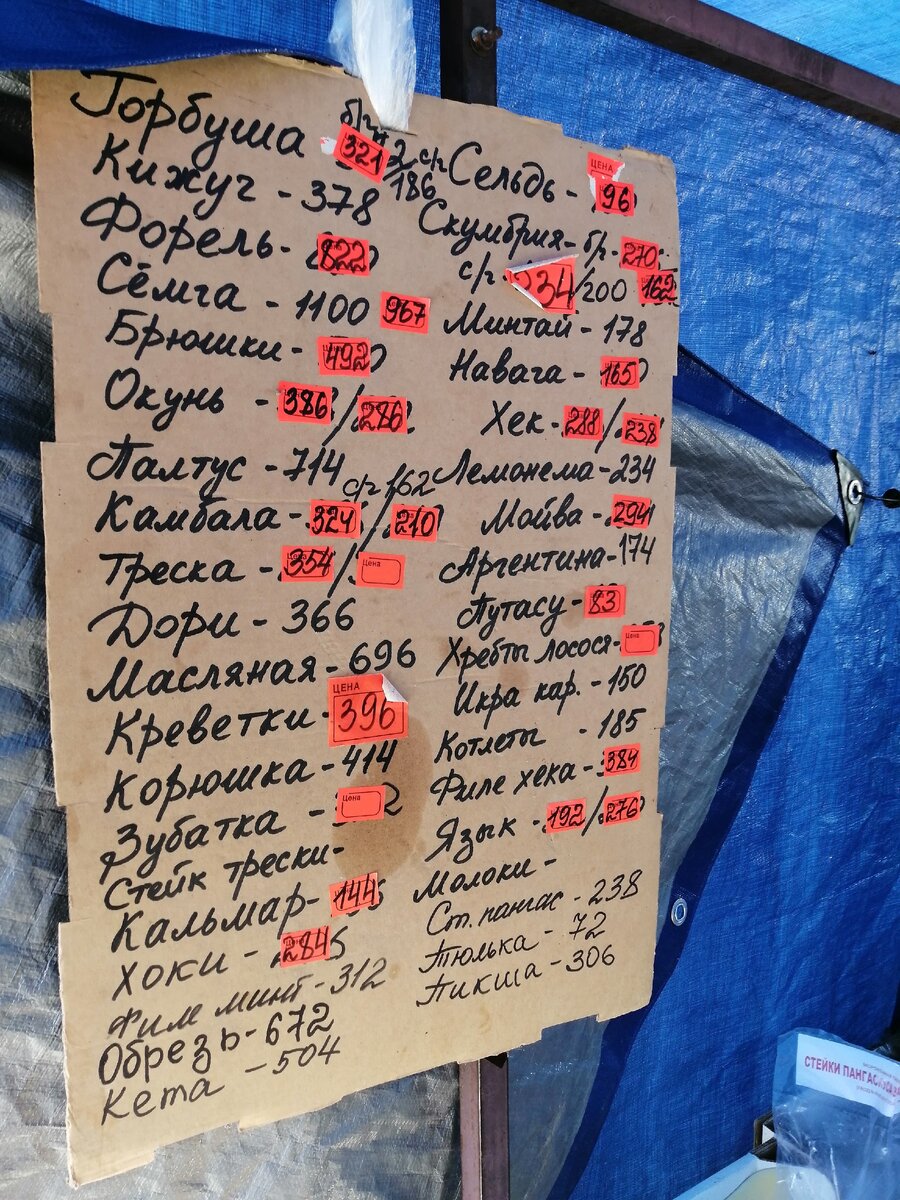 Горбуша б/г 321 с/г 186
Кижуч - 378
Форель - 822
Сёмга - 1100 967
Брюшки - 492
Окунь - 386 / 286
Палтус - 714
с/г 162
Камбала - 324 / 210
Треска - 354 / Цена
Дори - 366
Масляная - 696
ЦЕНА
Креветки - 396
Корюшка - 414
Зубатка - Цена
Стейк трески -
Кальмар - 144
Хоки - 284
Филе минт - 312
Обрезь - 672
Кета - 504
ЦЕНА
Сельдь - 96
Скумбрия - б/г - 270
с/г - 234 / 200 162
Минтай - 178
Навага - 165
Хек - 288 / 238
Лемонема - 234
Мойва - 294
Аргентина - 174
Путасу - 83
Хребты лосося - Цена
Икра кар. - 150
Котлеты - 185
Филе хека - 384
Язык - 192 / 276
Молоки -
Ст. пангас - 238
Тюлька - 72
Пикша - 306
СТЕЙКИ ПАНГАСИУСА